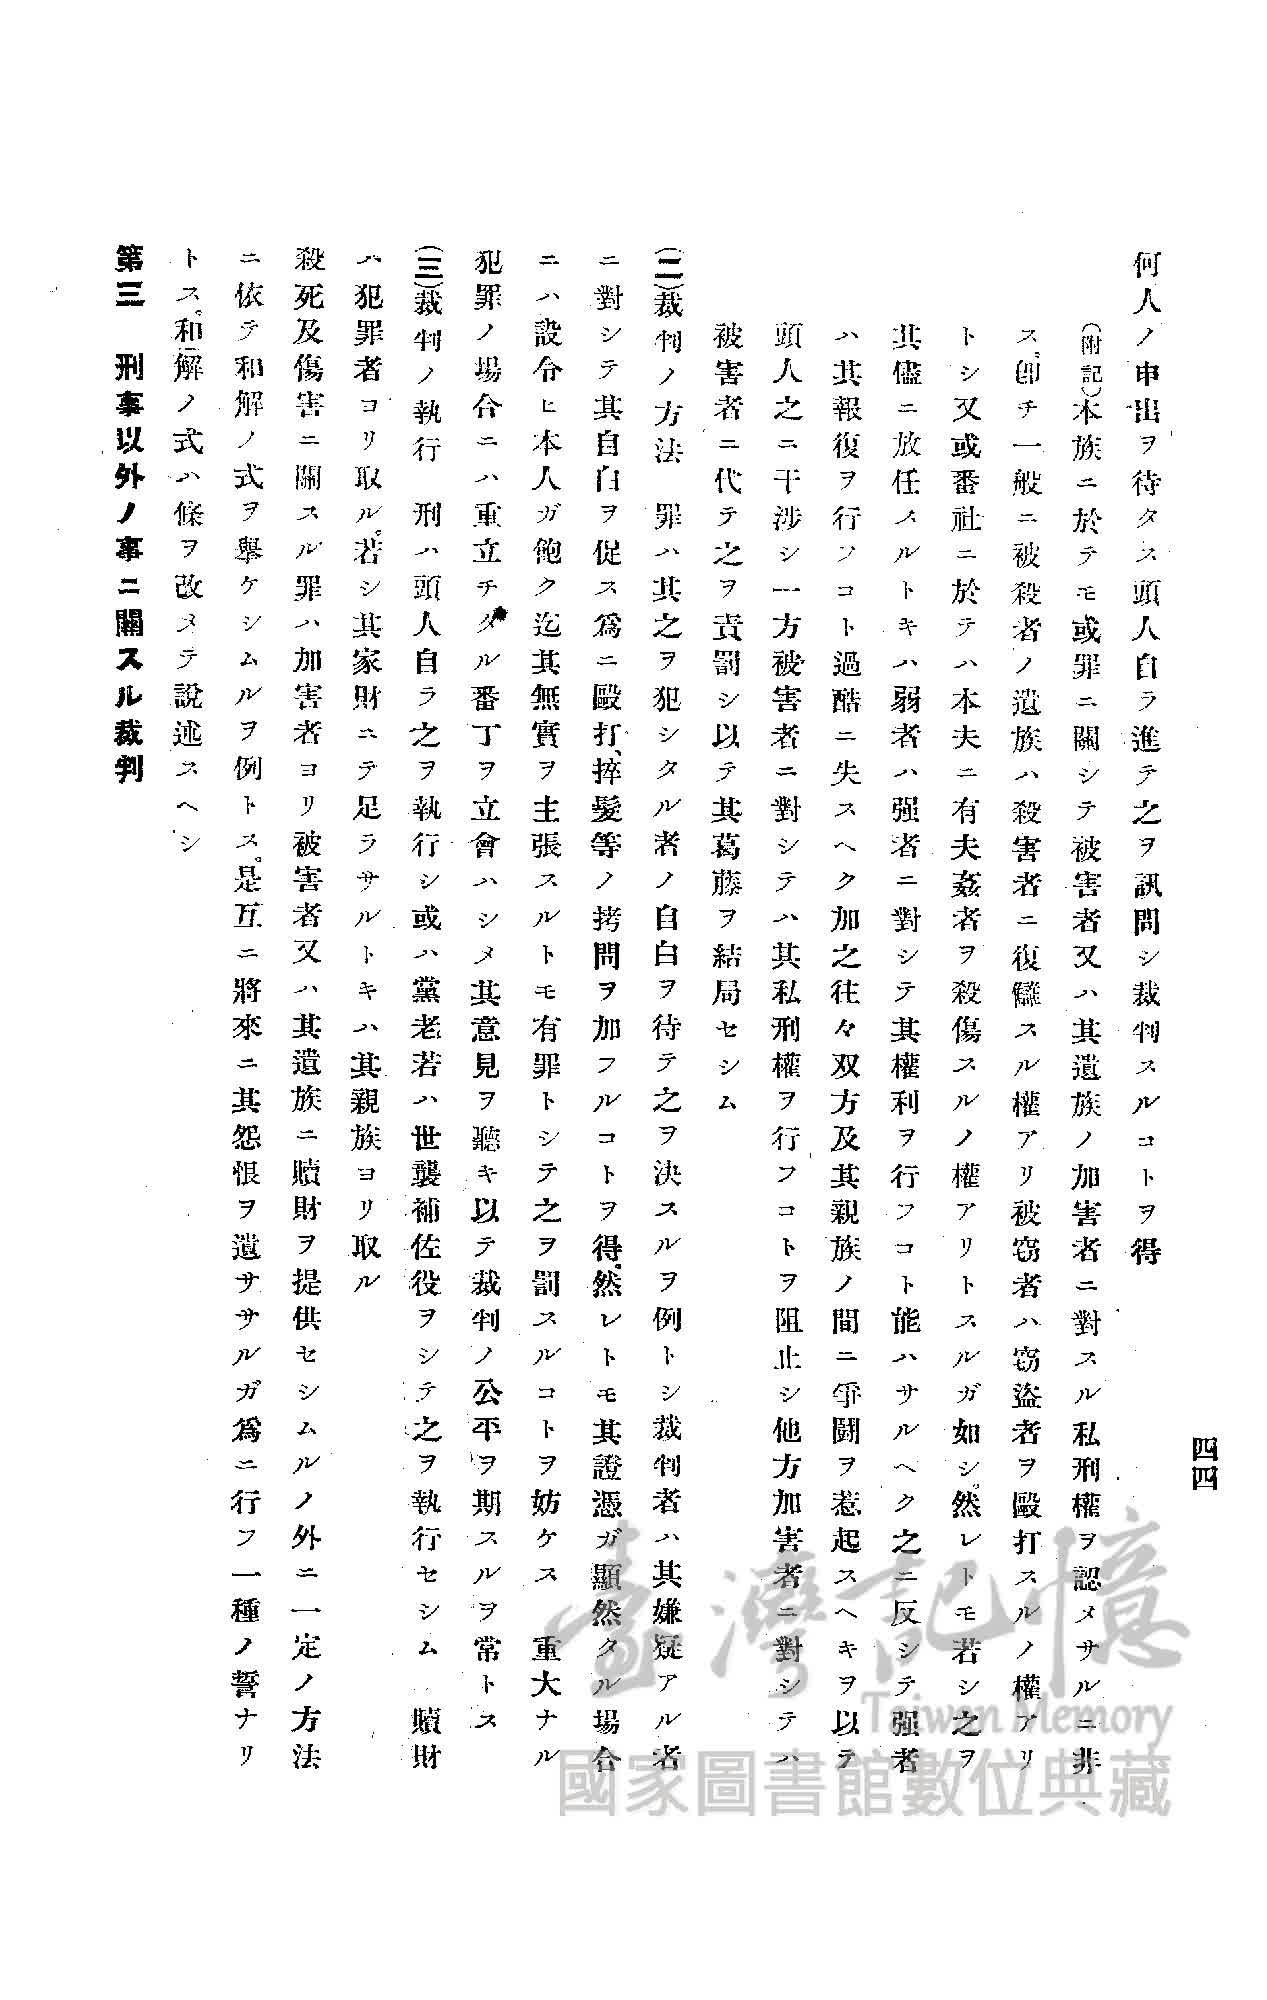 四四
何人ノ申出ヲ待タス頭人自ラ進テ之ヲ訊問シ裁判スルコトヲ得
(附記)本族ニ於テモ或罪ニ關シテ被害者又ハ其遺族ノ加害者ニ對スル私刑權ヲ認メサルニ非
ス。卽チ一般ニ被殺者ノ遺族ハ殺害者ニ復讎スル權アリ被窃者ハ窃盜者ヲ毆打スルノ權アリ
トシ又或番社ニ於テハ本夫ニ有夫姦者ヲ殺傷スルノ權アリトスルガ如シ。然レトモ若シ之ヲ
其儘ニ放任スルトキハ弱者ハ强者ニ對シテ其權利ヲ行フコト能ハサルヘク之ニ反シテ强者
ハ其報復ヲ行フコト過酷ニ失スヘク加之往々双方及其親族ノ間ニ爭鬪ヲ惹起スヘキヲ以テ
頭人之ニ干涉シ一方被害者ニ對シテハ其私刑權ヲ行フコトヲ阻止シ他方加害者ニ對シテハ
被害者ニ代テ之ヲ責罰シ以テ其葛藤ヲ結局セシム
(二)裁判ノ方法　罪ハ其之ヲ犯シタル者ノ自白ヲ待テ之ヲ決スルヲ例トシ裁判者ハ其嫌疑アル者
ニ對シテ其自白ヲ促ス爲ニ毆打、捽髮等ノ拷問ヲ加フルコトヲ得。然レトモ其證憑ガ顯然タル場合
ニハ設令ヒ本人ガ飽ク迄其無實ヲ主張スルトモ有罪トシテ之ヲ罰スルコトヲ妨ケス　重大ナル
犯罪ノ場合ニハ重立チタル番丁ヲ立會ハシメ其意見ヲ聽キ以テ裁判ノ公平ヲ期スルヲ常トス
(三)裁判ノ執行　刑ハ頭人自ラ之ヲ執行シ或ハ黨老若ハ世襲補佐役ヲシテ之ヲ執行セシム　贖財
ハ犯罪者ヨリ取ル。若シ其家財ニテ足ラサルトキハ其親族ヨリ取ル
殺死及傷害ニ關スル罪ハ加害者ヨリ被害者又ハ其遺族ニ贖財ヲ提供セシムルノ外ニ一定ノ方法
ニ依テ和解ノ式ヲ擧ケシムルヲ例トス。是互ニ將來ニ其怨恨ヲ遺サザルガ爲ニ行フ一種ノ誓ナリ
トス。和解ノ式ハ條ヲ改メテ說述スヘシ
第三　刑事以外ノ事ニ關スル裁判
臺灣記憶
Taiwan Memory
國家圖書館數位典藏